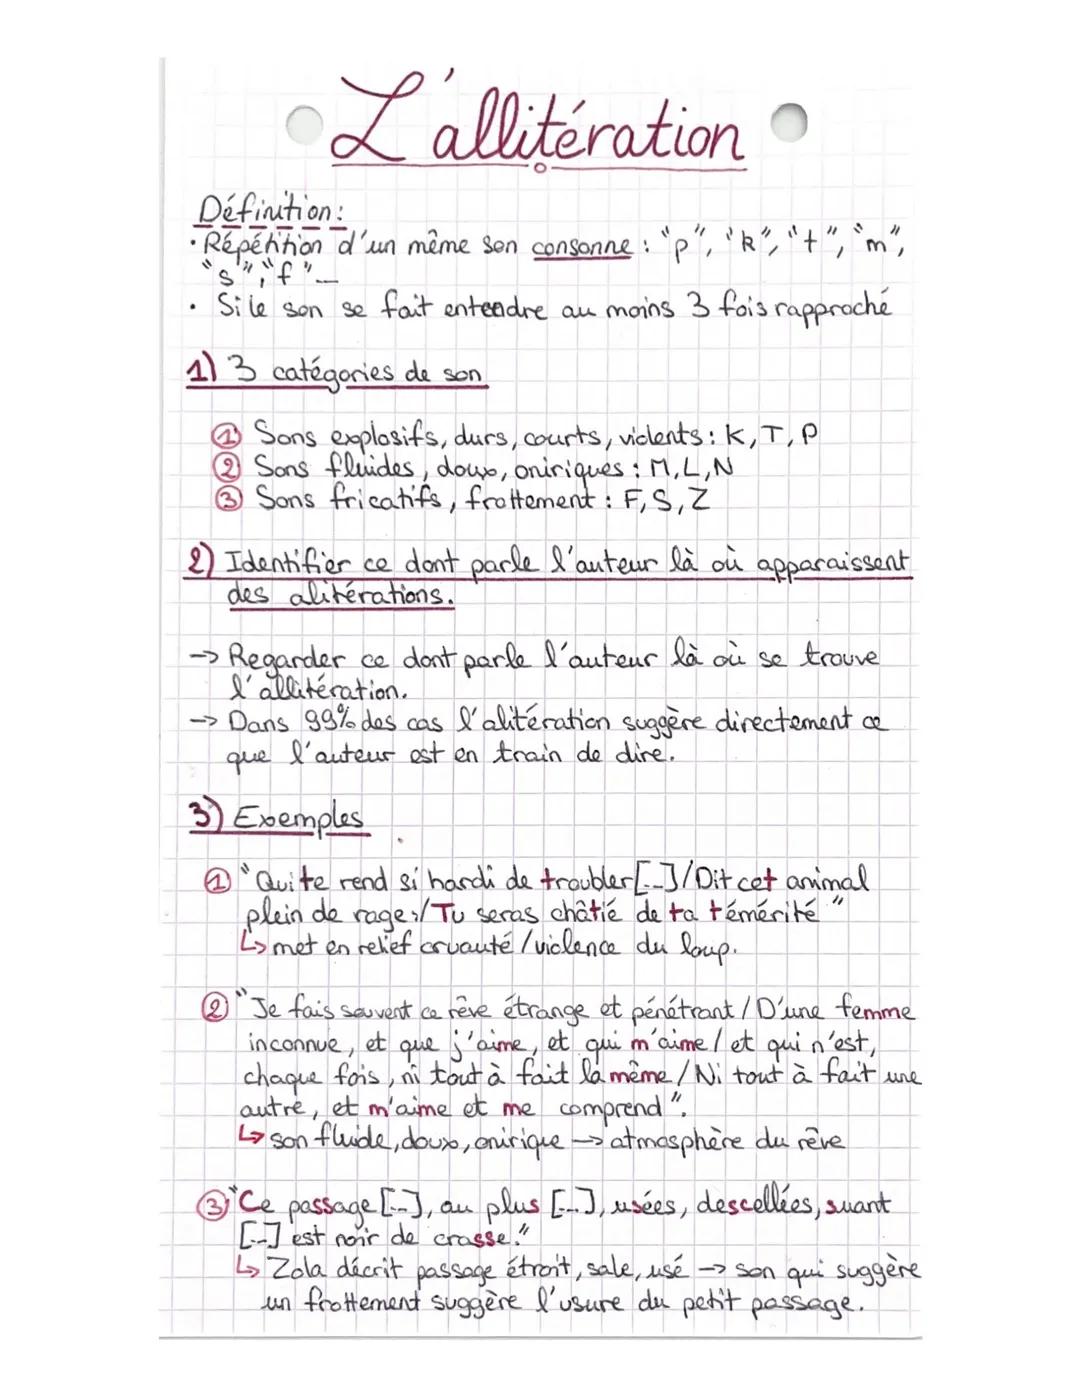 L'allitération
Définition:
• Répétition d'un même son consonne : "p", "k", "t", "m",
"s", "f"...
• Si le son se fait entendre au moins 3 fois rapproché
1) 3 catégories de son
① Sons explosifs, durs, courts, violents : K, T, P
② Sons fluides, doux, oniriques : M, L, N
③ Sons fricatifs, frottement : F, S, Z
2) Identifier ce dont parle l'auteur là où apparaissent
des alitérations.
-> Regarder ce dont parle l'auteur là où se trouve
l'allitération.
-> Dans 99% des cas l'alitération suggère directement ce
que l'auteur est en train de dire.
3) Exemples
① "Qui te rend si hardi de troubler [...] / Dit cet animal
plein de rage :/ Tu seras châtié de ta témérité"
↳ met en relief cruauté / violence du loup.
② "Je fais souvent ce rêve étrange et pénétrant / D'une femme
inconnue, et que j'aime, et qui m'aime / et qui n'est,
chaque fois, ni tout à fait la même / Ni tout à fait une
autre, et m'aime et me comprend".
↳ son fluide, doux, onirique -> atmosphère du rêve
③ "Ce passage [...], au plus [...], usées, descellées, suant
[...] est noir de crasse."
↳ Zola décrit passage étroit, sale, usé -> son qui suggère
un frottement suggère l'usure du petit passage.